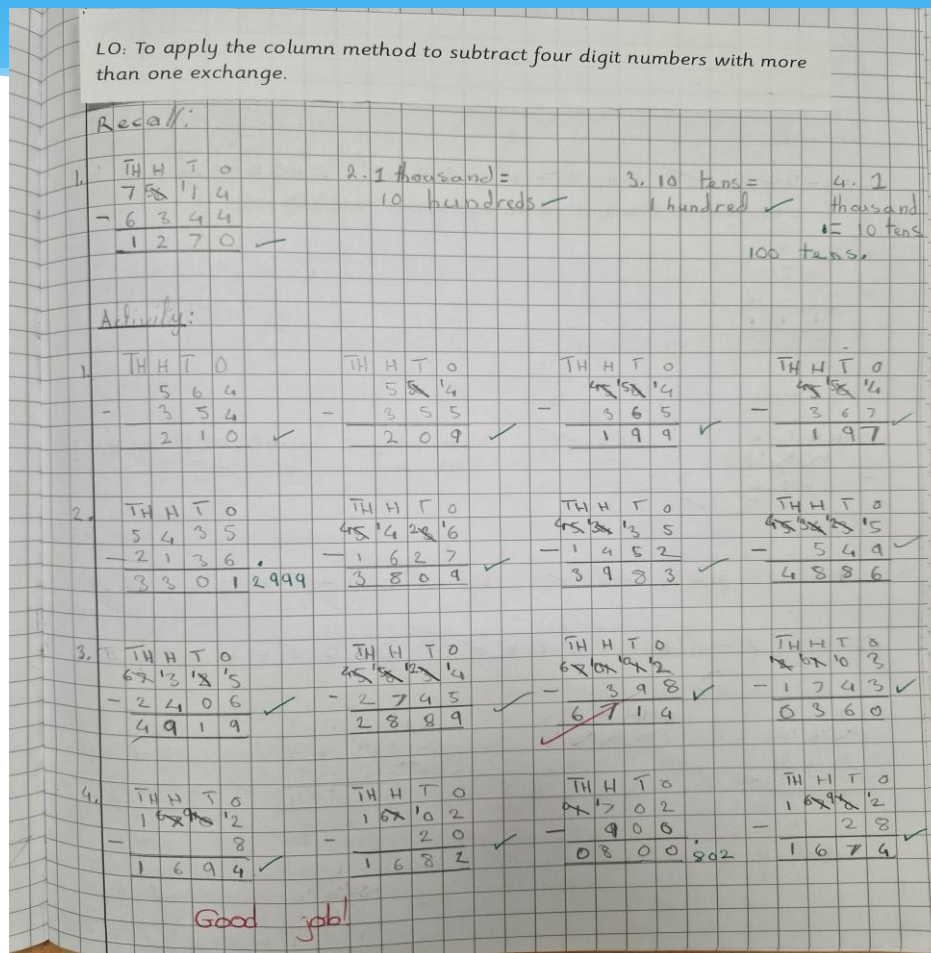 LO: To apply the column method to subtract four digit numbers with more
than one exchange.
Recall:
1.
TH H T O
7 56 '1 4
- 6 3 4 4
1 2 7 0
2. 1 thousand =
10 hundreds
3. 10 tens =
1 hundred
4. 1
thousand
= 10 tens
100 tens.
Activity:
1.
TH H T O
5 6 4
- 3 5 4
2 1 0
TH H T O
5 56 '4
- 3 5 5
2 0 9
TH H T O
45 '56 '4
- 3 6 5
1 9 9
TH H T O
45 '56 '4
- 3 6 7
1 9 7
2.
TH H T O
5 4 3 5
- 2 1 3 6 .
3 3 0 1 2999
TH H T O
45 '4 23 '6
- 1 6 2 7
3 8 0 9
TH H T O
45 '34 '3 5
- 1 4 5 2
3 9 8 3
TH H T O
45 '34 '23 '5
- 5 4 9
4 8 8 6
3.
TH H T O
67 '3 '5
- 2 4 0 6
4 9 1 9
TH H T O
45 '56 '23 '4
- 2 7 4 5
2 8 8 9
TH H T O
67 '2
- 3 9 8
6 7 1 4
TH H T O
'0 3
- 1 7 4 3
0 3 6 0
4.
TH H T O
1 67 '2
- 8
1 6 9 4
TH H T O
1 67 '0 2
- 2 0
1 6 8 2
TH H T O
'7 0 2
- 9 0 0
0 8 0 0 802
TH H T O
1 67 '2
- 2 8
1 6 7 4
Good job!